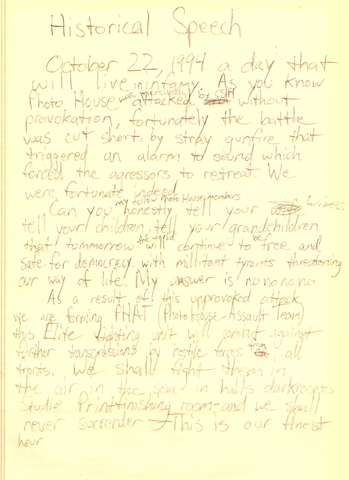 Historical Speech
October 22, 1994 a day that
will live in infamy. As you know
Photo House was attacked by CSH without
provokation, fortunately the battle
was cut short, by stray gunfire that
triggered an alarm to sound which
forced the agressors to retreat. We
were fortunate indeed.
my fellow Photo House members
Can you honestly tell your wives
tell your children, tell your grandchildren
that tommorrow the world will continue to be free and
safe for democracy, with millitant tyrants threatening
our way of life. My answer is no no no no
As a result of this unprovoked attack
we are forming PHAT (Photo House Assault Team)
this Elite fighting unit will combat against
further transgressions by hostile forces from all
fronts. We shall fight them in
the air in the sea in halls darkrooms
Studio Printfinishing room and we shall
never surrender This is our finest
hour